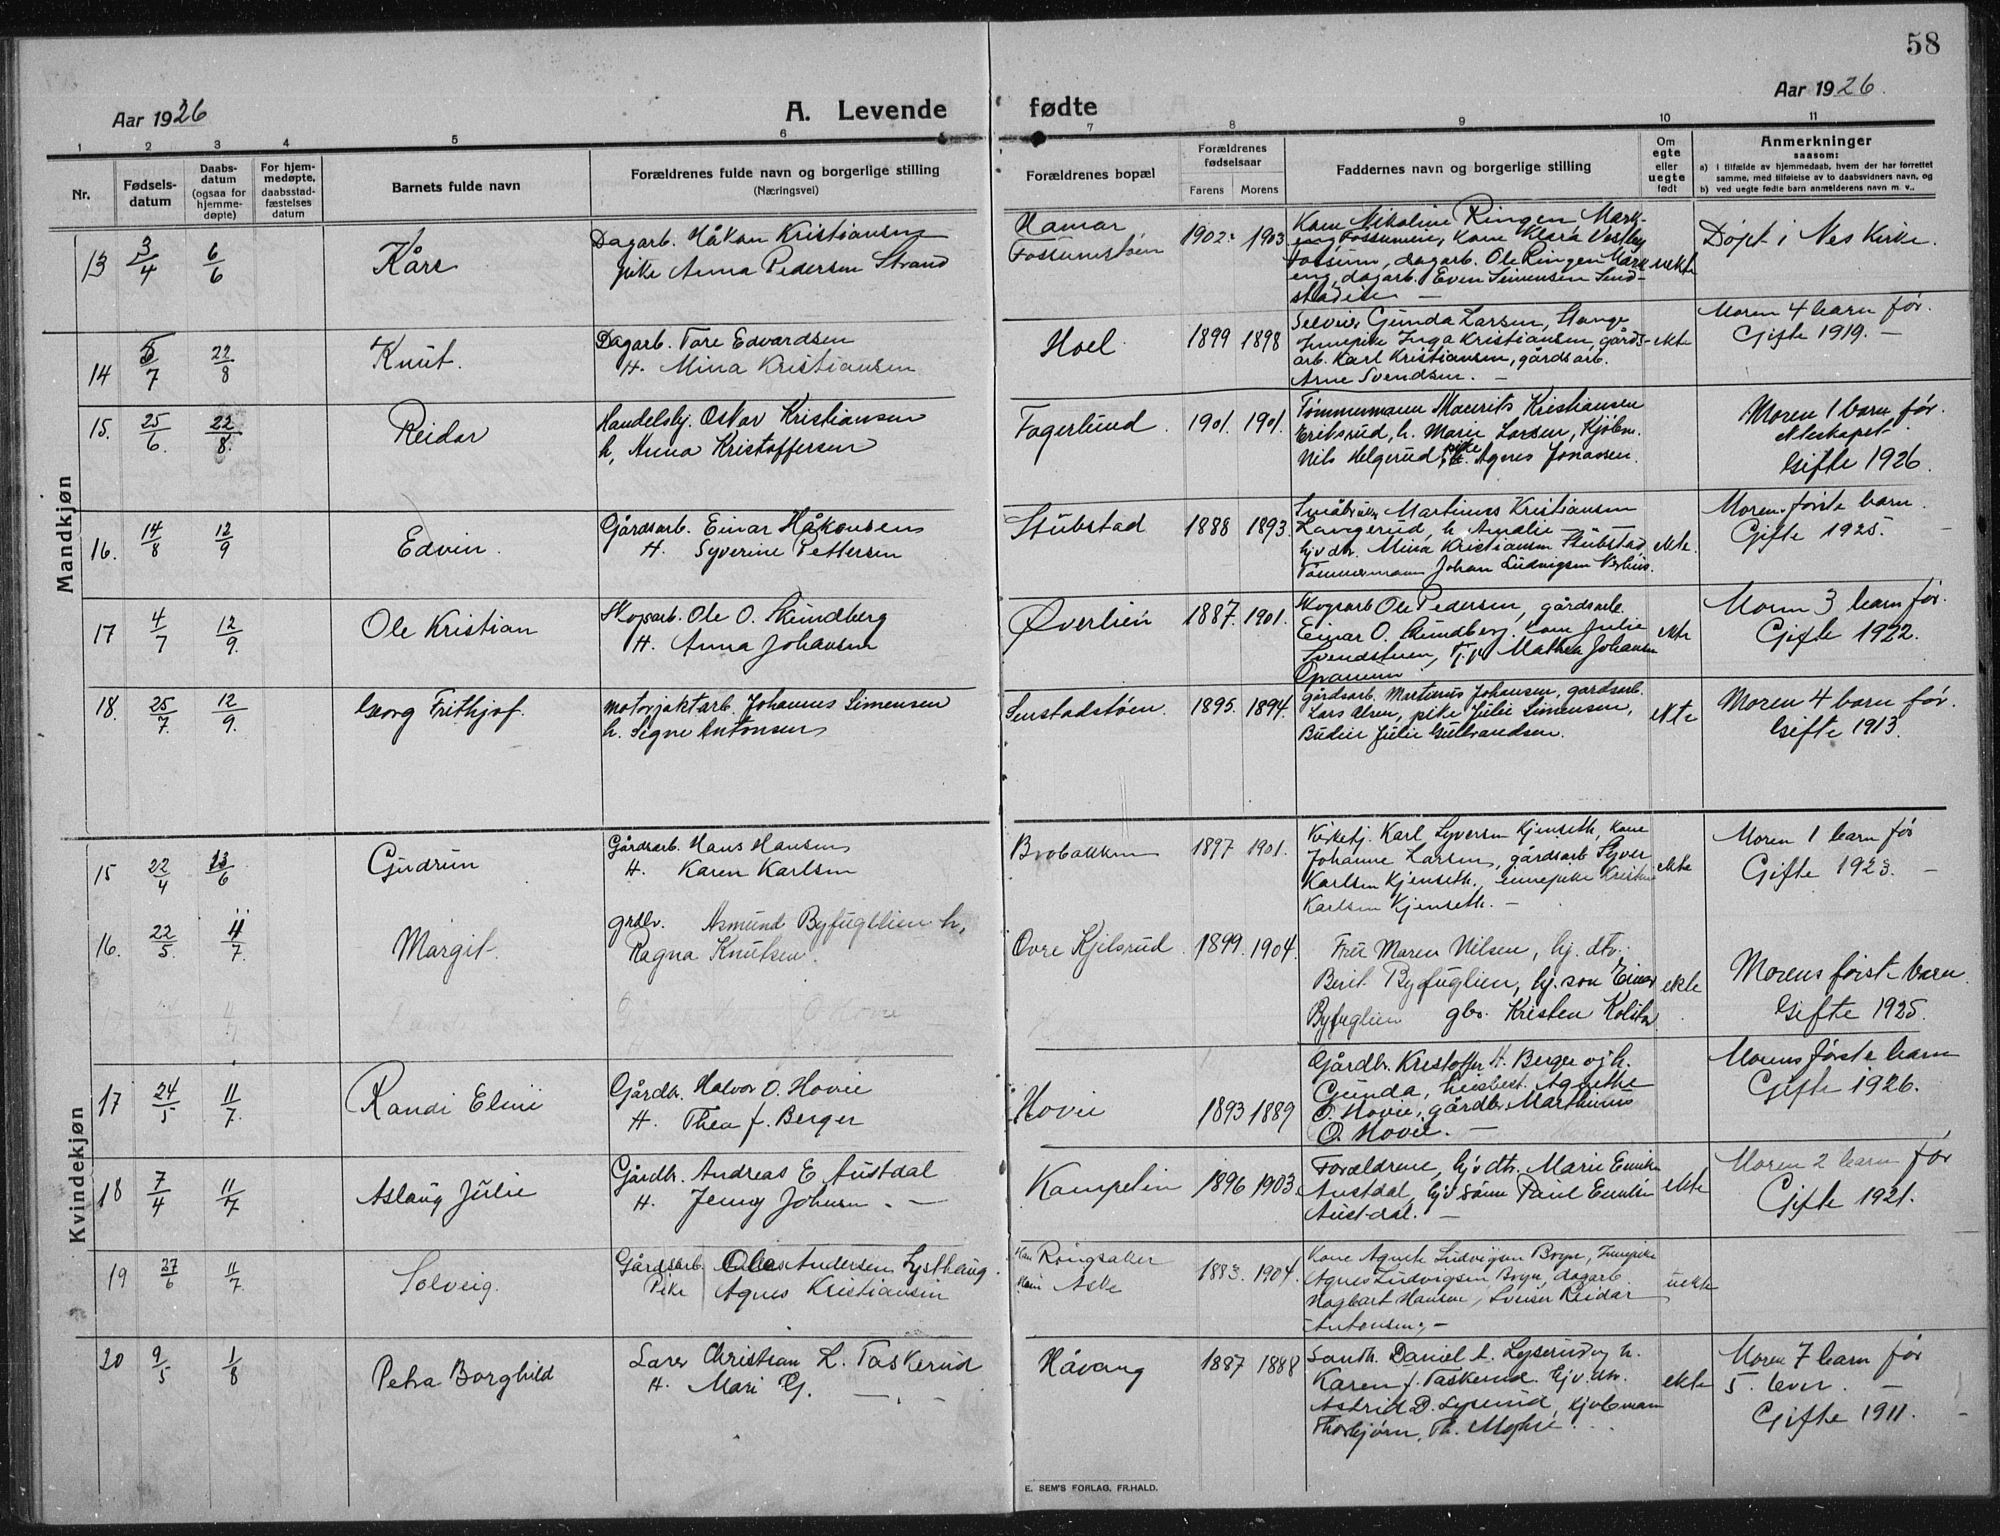 58
Aar 1926 A. Levende fødte Aar 1926.
1 2 3 4 5 6 7 8 9 10 11
Nr. Fødsels-datum Daabs-datum (ogsaa for hjemme-døpte) For hjem-medøpte, daabsstad-fæstelses datum Barnets fulde navn Forældrenes fulde navn og borgerlige stilling (Næringsvei) Forældrenes bopæl Forældrenes fødselsaar Farens Morens Faddernes navn og borgerlige stilling Om egte eller uegte født Anmerkninger saasom:
a) i tilfælde av hjemmedaab, hvem der har forrettet samme, med tilføielse av to daabsvidners navn, og
b) ved uegte fødte barn anmelderens navn m. v..
Mandkjøn
13 3/4 6/6 Kåre Dagarb. Håkon Kristiansen
pike Anna Pedersen Strand
Hamar
Fossumstøen 1902. 1903
Kone Nikoline Ringen Mark-
eng Fossumen, kone Klara Vestby
Fossum, dagarb. Ole Ringen Mark-
eng, dagarb. Even Simensen Send-
stadien —
uekte Døpt i Nes Kirke.
14 5/7 22/8 Knut. Dagarb. Tore Edvardsen
H. Mina Kristiansen
Hoel 1899 1898
Gunda Larsen, Stange
Innepike Inga Kristiansen, gårds-
arb. Karl Kristiansen, gårdsarb.
Arne Svendsen. —
ekte Moren 4 barn før.
Gifte 1919. —
15. 25/6. 22/8. Reidar Handelsbj. Oskar Kristiansen
h, Anna Kristoffersen
Fagerlund. 1901. 1901.
Tømmermann Maurits Kristiansen
Eriksrud, h. Marie Larsen, Kjøbm.
Nils Helgerud, pike Agnes Jonassen.
Moren 1 barn før.
ekteskapet.
Gifte 1926.
16. 14/8 12/9 Edvin. Gårdsarb. Einar Håkonsen
H. Syverine Pettersen
Stubstad 1888 1893.
Småbruker Martinus Kristiansen
Langerud, h. Amalie
hjv. dtr. Mina Kristiansen Stubstad
Tømmermann Johan Ludvigsen
ekte. Morens første barn.
Gifte 1925.
17 4/7 12/9. Ole Kristian Skogsarb. Ole O. Skundberg
H. Anna Johansen
Øverlien 1887. 1901.
Skogsarb Ole Pedersen, gårdsarb.
Einar O. Skundberg. kone Julie
Svendstuen, Mathea Johansen
ekte Moren 3 barn før.
Gifte 1922.
18. 25/7. 12/9. Georg Frithjof. motorjaktarb. Johannes Simensen
h. Signe Antonsen
Senstadstøen. 1895. 1894.
gårdsarb. Martinus Johansen, gardsarb.
Lars Olsen, pike Julie Simensen,
Budeie Julie Gulbrandsen.
ekte Moren 4 barn før.
Gifte 1913.
Kvindekjøn
15 22/4 13/6 Gudrun Gårdsarb. Hans Hansen
H. Karen Karlsen
Brobakken 1897 1901.
Kirketj. Karl Syversen Kjenseth, kone
Johanne Larsen, gårdsarb Syver
Karlsen Kjenseth, innepike Kristine
Karlsen Kjenseth. —
ekte Moren 1 barn før
Gifte 1923. —
16. 22/5. 11/7. Margit. grdbr. Asmund Byfuglien h,
Ragna Knutsen.
Øvre Kjelsrud. 1899. 1904.
Fru Maren Nilsen, hj. dtr.
Berit Byfuglien, hj. søn Einar
Byfuglien gbr. Kristen Kolstad
ekte. Morens først barn.
Gifte 1925.
17 24/5 11/7. Randi Eline Gårdbr. Halvor O. Hovie
H. Thea J. Berger
Hovie 1893 1889
Gårdbr. Kristoffer H. Berger og h.
Gunda, Agnethe
O. Hovie, gårdbr. Marthinus
O. Hovie. —
Morens første barn
Gifte 1926.
18 7/4 11/7 Aslaug Julie Gårdbr. Andreas E Austdal
H. Jenny Johnsen. —
Kampelien 1896 1903
Forældrene, hjv. dtr. Marie Emilie
Austdal, hjv sønn Paul Emilius
Austdal. —
ekte Moren 2 barn før
Gifte 1921.
19 27/6 11/7. Solveig. Gårdsarb. Ole Andersen Lysthaug.
Pike Agnes Kristiansen
Han Ringsaker
Hun Aske 1883. 1904.
Kone Agnete Ludvigsen Bryn, Innepike
Agnes Ludvigsen Bryn, dagarb.
Hagbart Hansen, Reidar
Antonsen, —
uekte
20 9/5 1/8 Petra Borghild Lærer Christian L. Taskerud
H. Mari G. —
Håvang 1887 1888
Landh. Daniel A. Lyserud og h.
Karen f. Taskerud. hjv. dtr.
Astrid D. Lyserud, kjøbmann
Thorbjørn Th. Moshie.
ekte Moren 7 barn før
5. lever. —
Gifte 1911.
E. SEM'S FORLAG, FR.HALD.